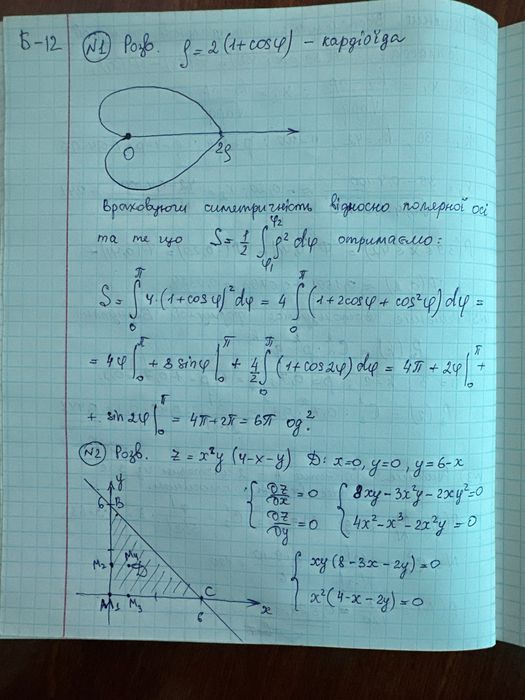 Б-12
N1 Розв. ρ = 2(1+cosφ) – кардіоїда
O 2ρ
Враховуючи симетричність відносно полярної осі
та те що S = 1/2 ∫_{φ₁}^{φ₂} ρ² dφ отримаємо:
S = ∫_0^π 4·(1+cosφ)² dφ = 4 ∫_0^π (1+2cosφ+cos²φ) dφ =
= 4φ|_0^π + 8 sinφ|_0^π + 4/2 ∫_0^π (1+cos2φ) dφ = 4π + 2φ|_0^π +
+ sin2φ|_0^π = 4π+2π = 6π од²
N2 Розв. z = x²y (4-x-y) D: x=0, y=0, y=6-x
y
6 B
M₂ M₄ D
A M₁ M₃ C x
6
{ ∂z/∂x = 0 { 8xy-3x²y-2xy²=0
∂z/∂y = 0 4x²-x³-2x²y=0
{ xy(8-3x-2y)=0
x²(4-x-2y)=0